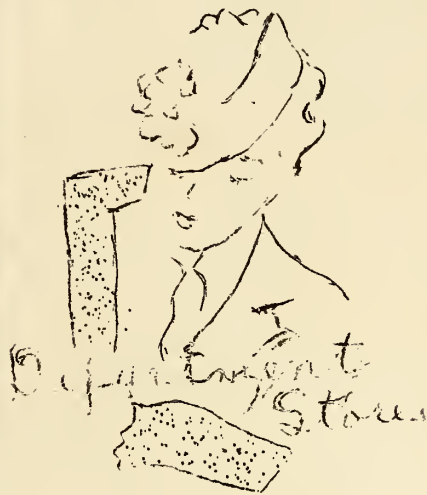 Department
Stores